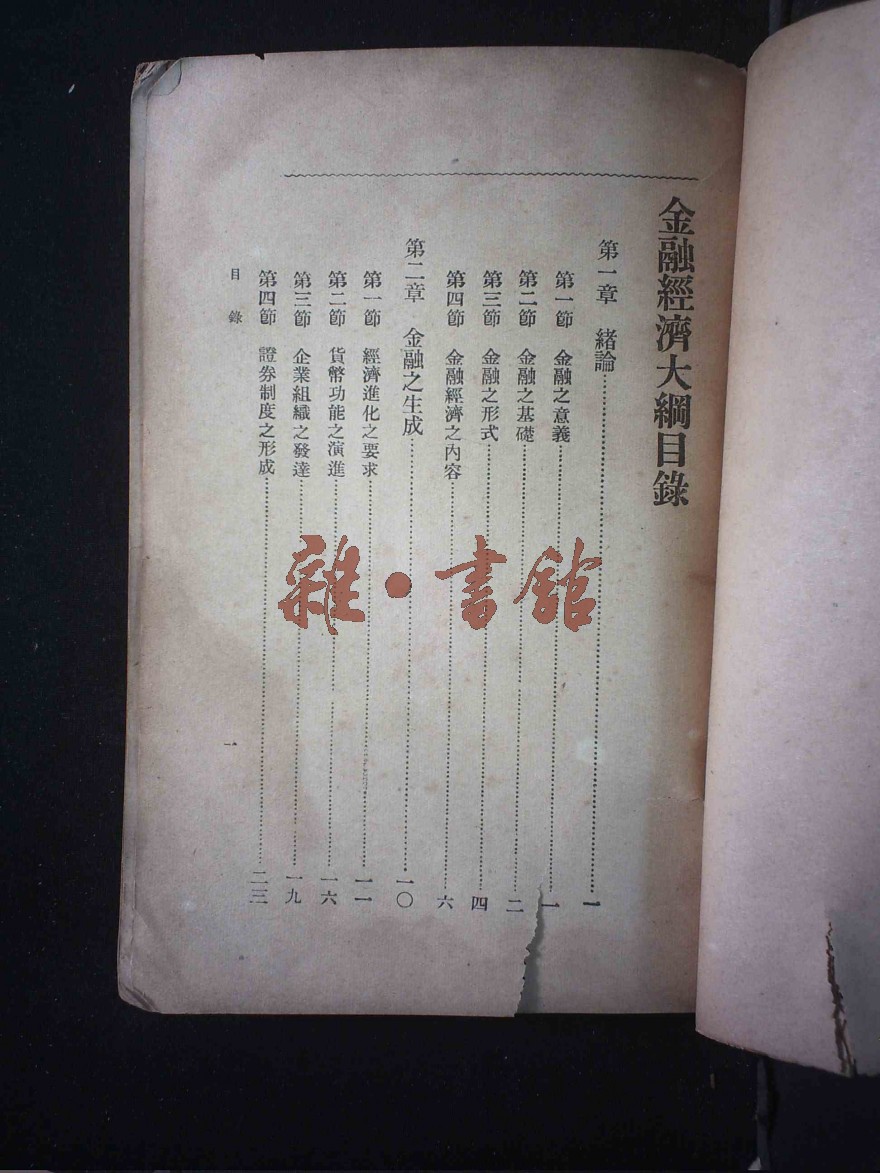 金融經濟大綱目錄
第一章 緒論……一
第一節 金融之意義……一
第二節 金融之基礎……二
第三節 金融之形式……四
第四節 金融經濟之內容……六
第二章 金融之生成……一〇
第一節 經濟進化之要求……一一
第二節 貨幣功能之演進……一六
第三節 企業組織之發達……一九
第四節 證券制度之形成……二三
目錄 一
雜·書館